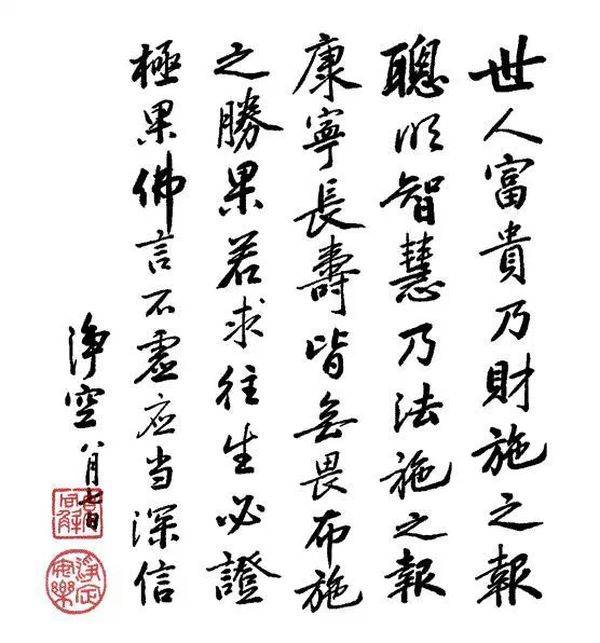 世人富貴乃財施之報
聰明智慧乃法施之報
康寧長壽皆無畏布施
之勝果若求往生必證
極果佛言不虛应当深信
淨空 八月七日